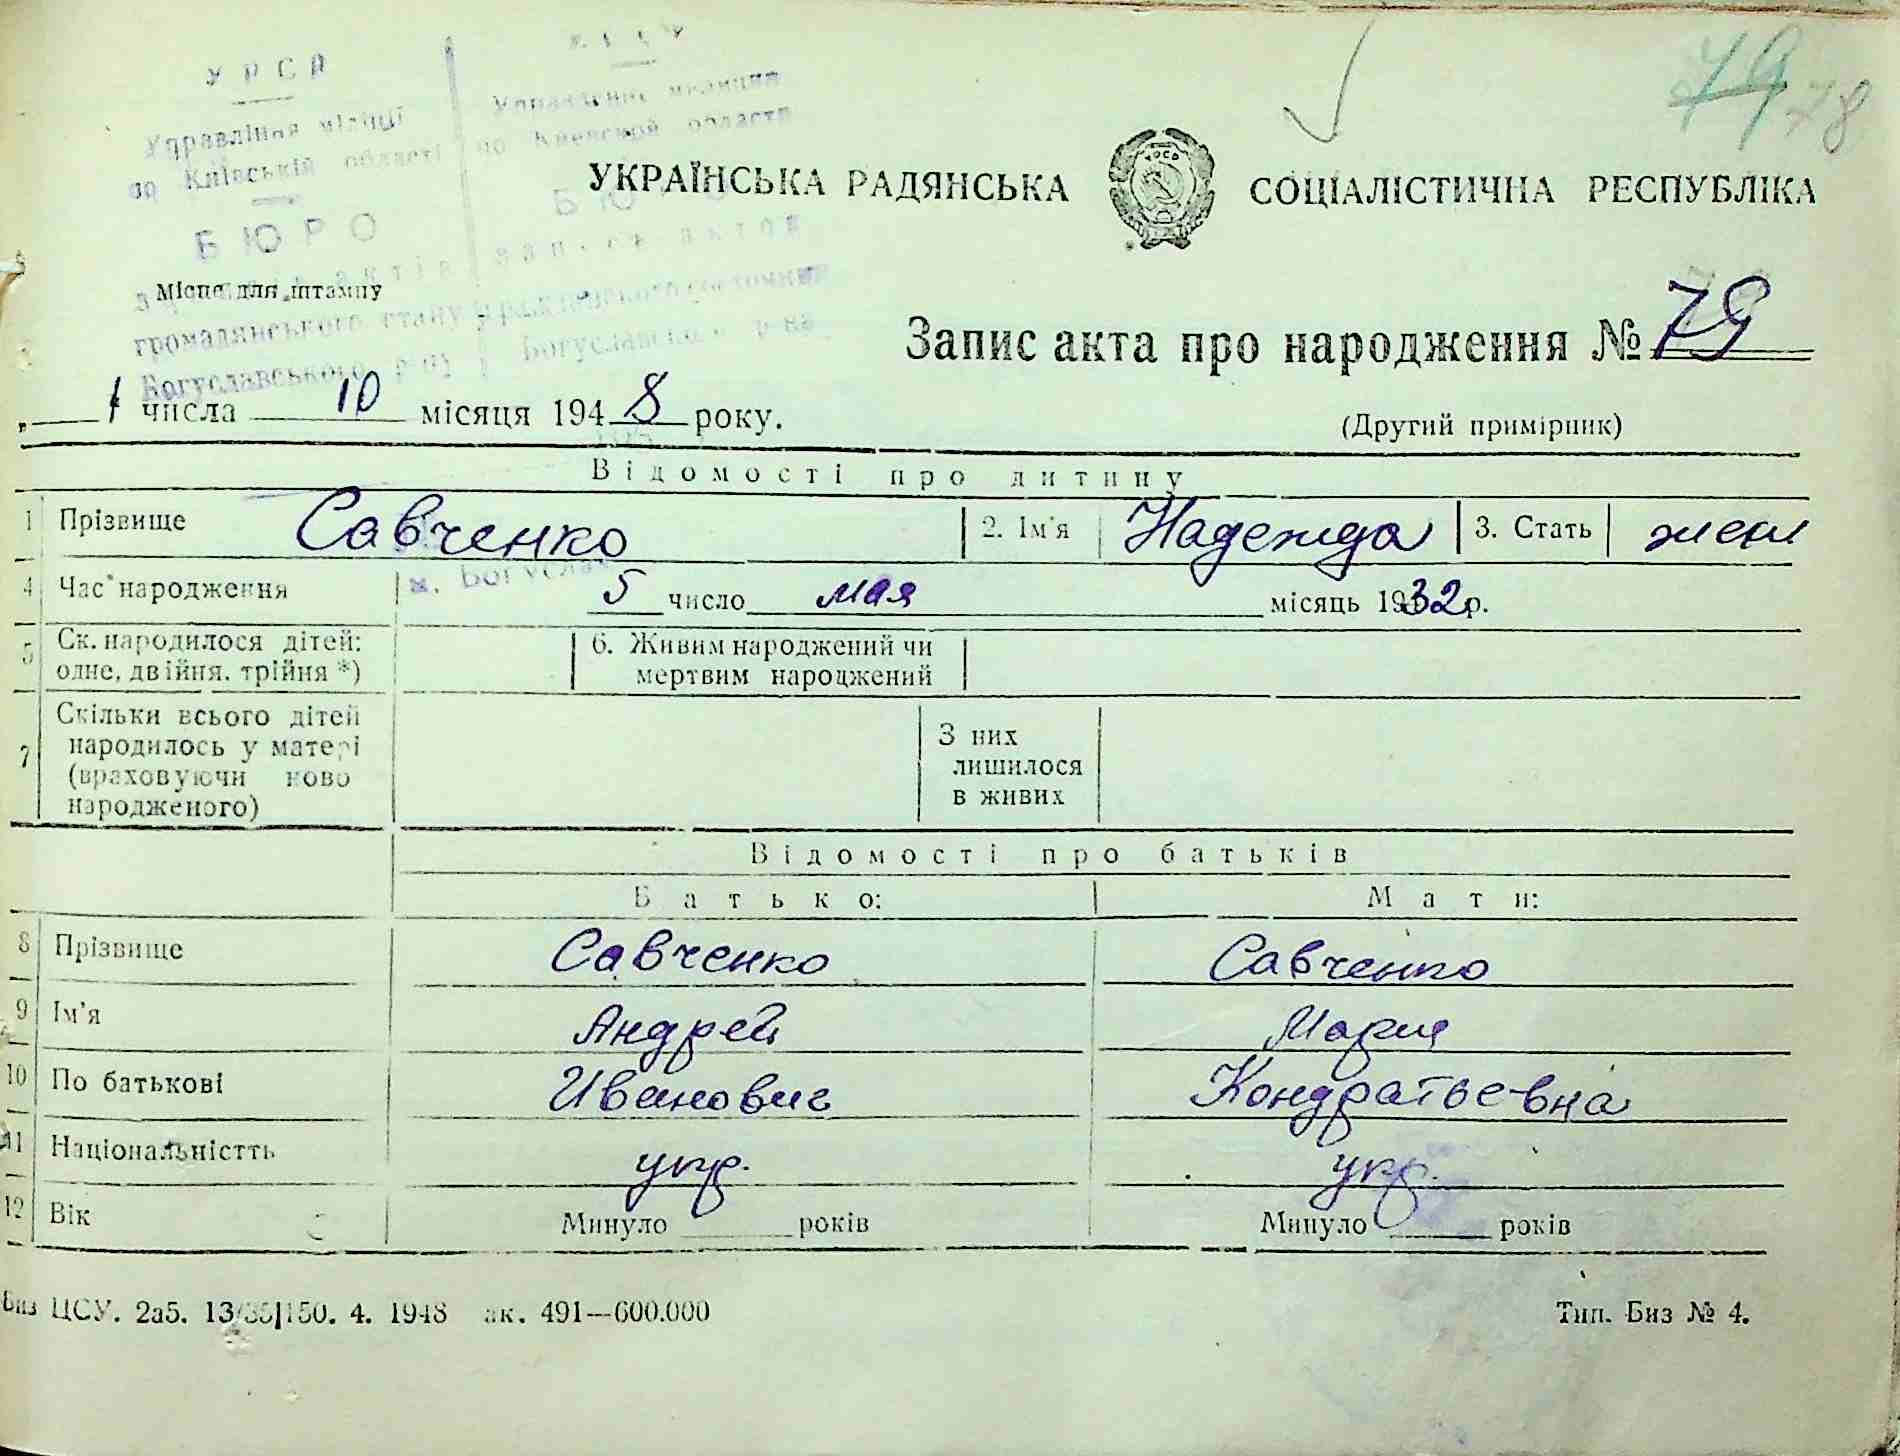 УРСР
Управління міліції
по Київській області
БЮРО
актів
громадянського стану
Богуславського р-ну
Управление милиции
по Киевской области
БЮРО
записи актов
гражданского состояния
Богуславского р-на
м. Богуслав
79 78
УКРАЇНСЬКА РАДЯНСЬКА СОЦІАЛІСТИЧНА РЕСПУБЛІКА
УРСР
Місце для штампу
Запис акта про народження № 79
„ 1 числа 10 місяця 1948 року.
(Другий примірник)
Відомості про дитину
1 Прізвище Савченко 2. Ім'я Надежда 3. Стать жен
4 Час народження 5 число мая місяць 1932 р.
5 Ск. народилося дітей: 6. Живим народжений чи
одне, двійня. трійня *) мертвим народжений
7 Скільки всього дітей
народилось у матері
(враховуючи ново
народженого)
З них
лишилося
в живих
Відомості про батьків
Батько: Мати:
8 Прізвище Савченко Савченко
9 Ім'я Андрей Мария
10 По батькові Иванович Кондратьевна
11 Національністть укр. укр.
12 Вік Минуло ____ років Минуло ____ років
ЦСУ. 2а5. 13/35|150. 4. 1948 491—600.000 Тип. Биз № 4.